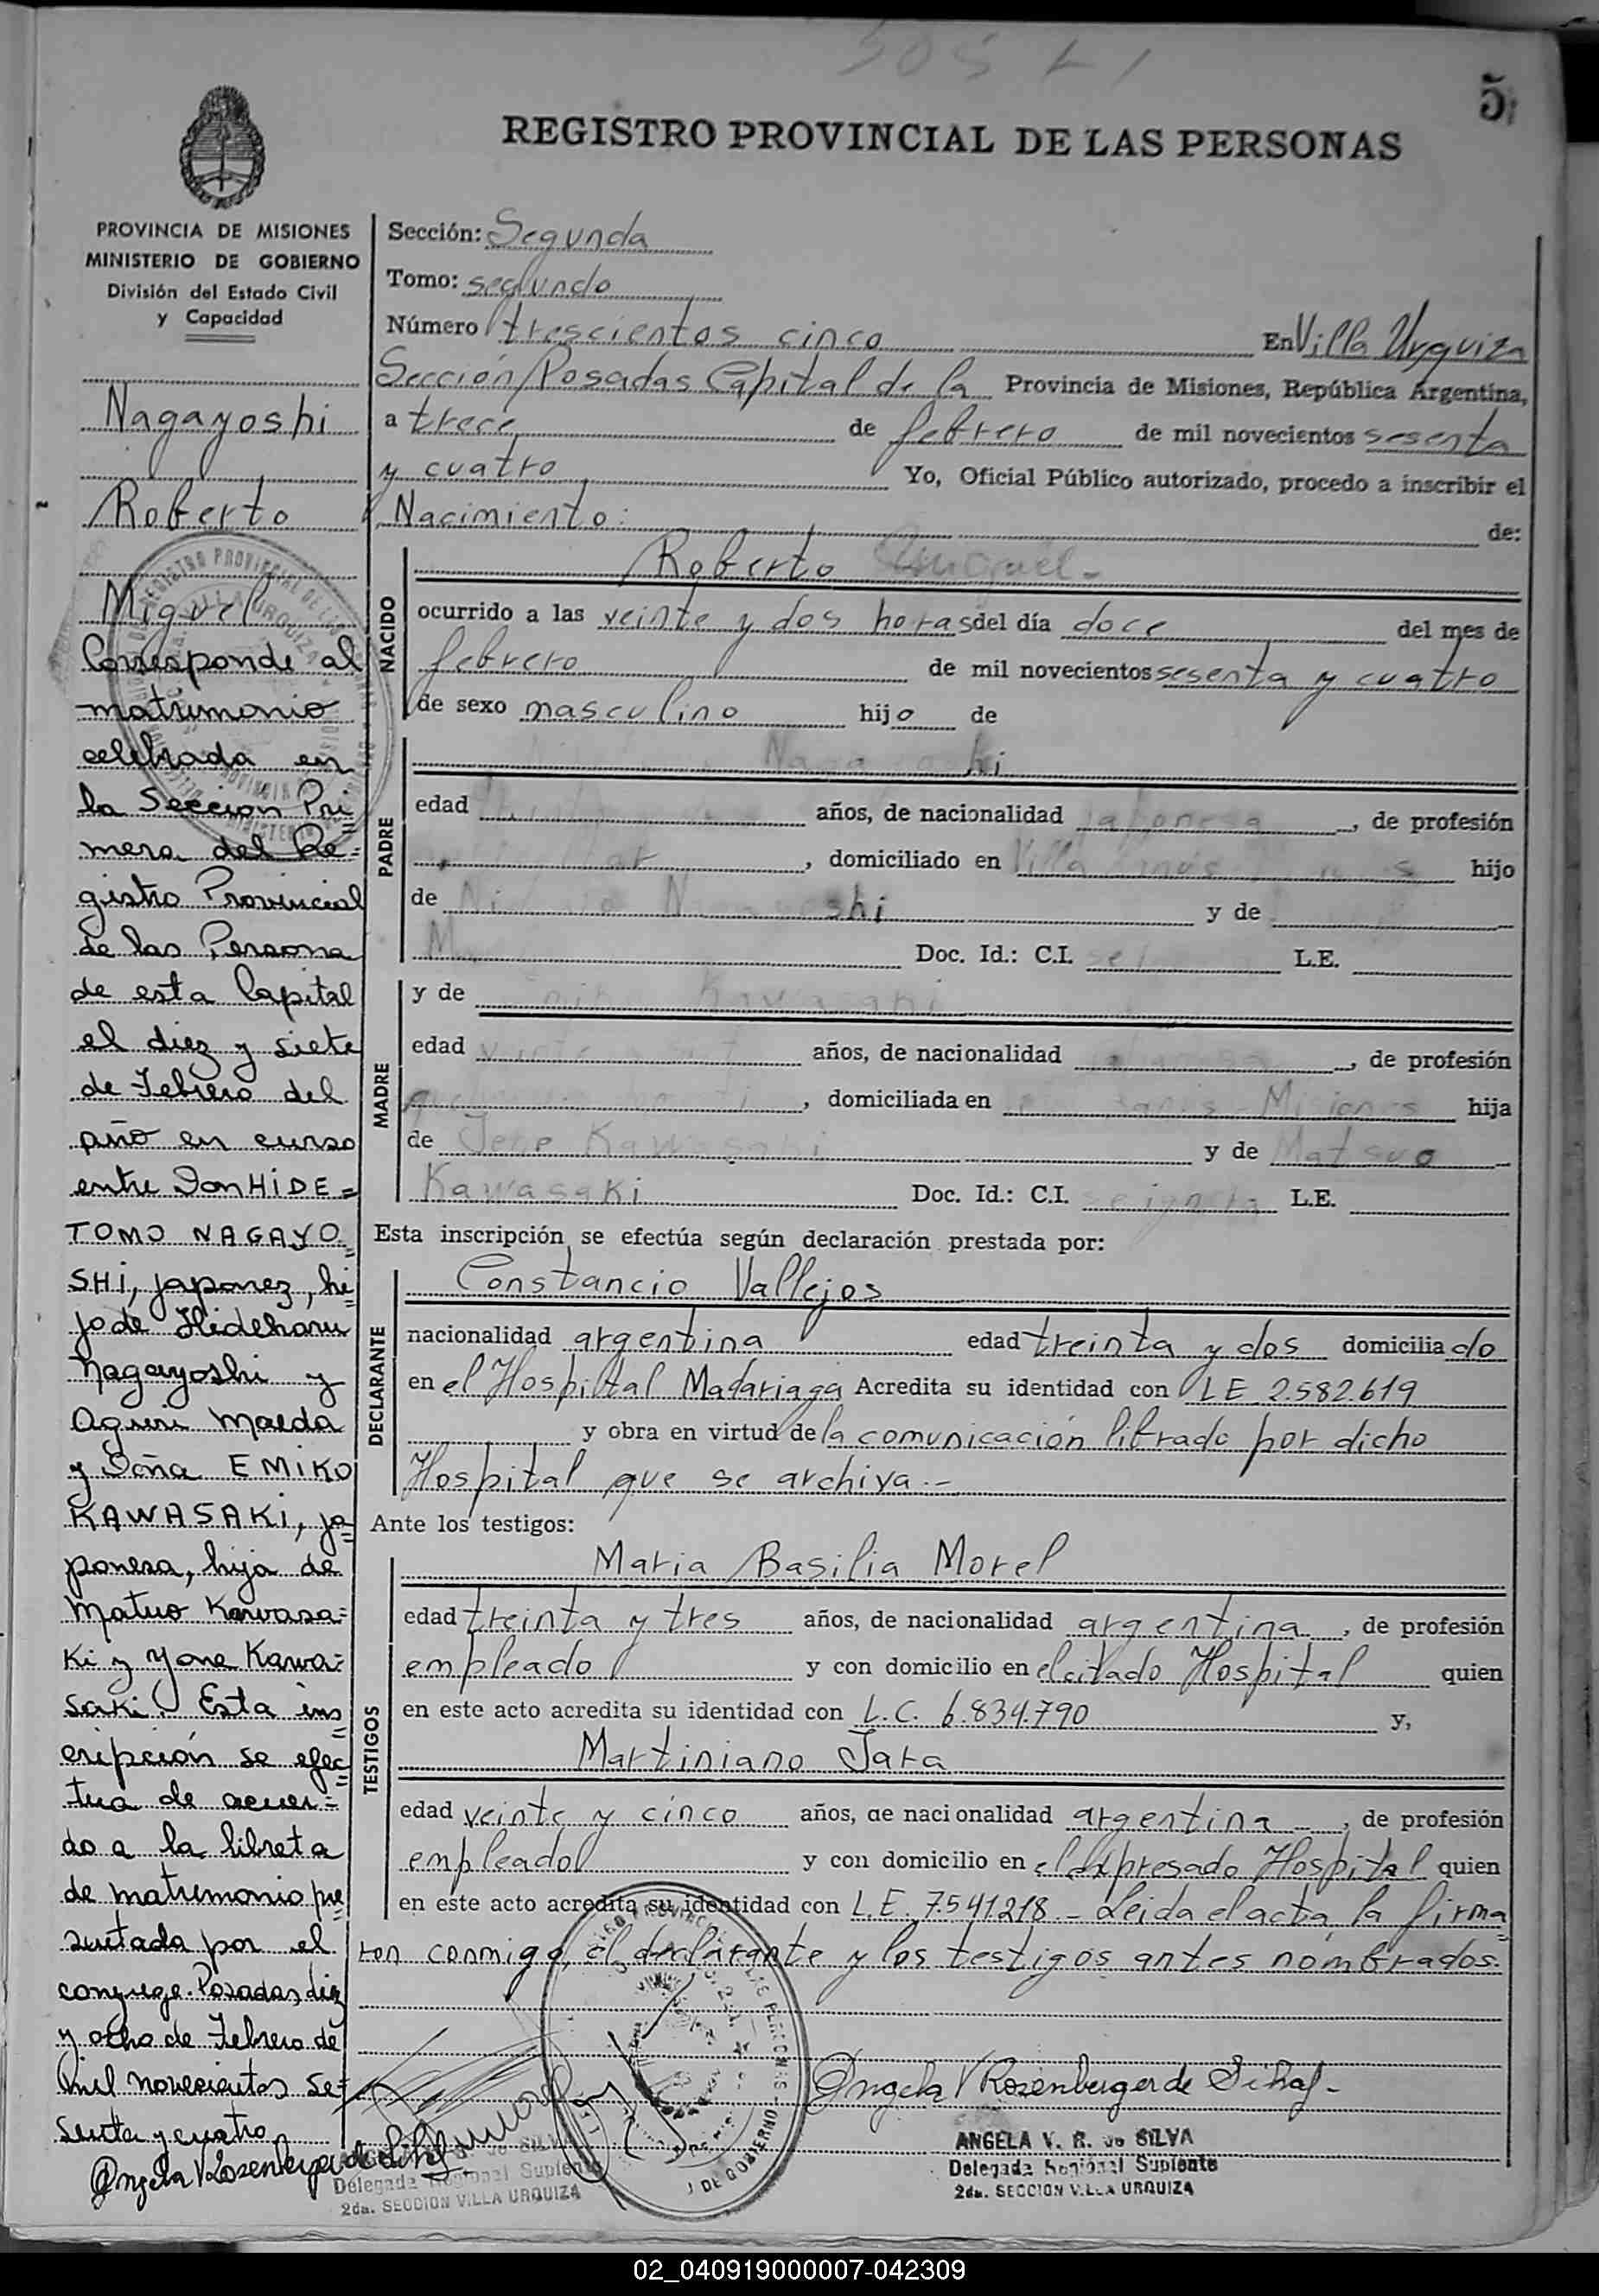 5
REGISTRO PROVINCIAL DE LAS PERSONAS
PROVINCIA DE MISIONES
MINISTERIO DE GOBIERNO
División del Estado Civil
y Capacidad
Nagayoshi
Roberto
Miguel
Corresponde al
matrimonio
celebrado en
la Seccion Pri=
mera del Re=
gistro Provincial
de las Persona
de esta Capital
el diez y siete
de Febrero del
año en curso
entre Don HIDE=
TOMO NAGAYO=
SHI, japonez, hi=
jo de Hideharu
Nagayoshi y
Maeda
y Doña EMIKO
KAWASAKI, ja=
ponesa, hija de
Matuo Kawasa=
ki y Yone Kawa=
saki. Esta ins=
cripción se efec=
tua de acuer=
do a la libreta
de matrimonio pre
sentada por el
conyuge. Posadas, diez
y ocho de Febrero de
mil novecientos se=
senta y cuatro
Sección: Segunda
Tomo: segundo
Número trescientos cinco En Villa Urquiza
Sección Posadas Capital de la Provincia de Misiones, República Argentina,
a trece de febrero de mil novecientos sesenta
y cuatro Yo, Oficial Público autorizado, procedo a inscribir el
Nacimiento: de:
NACIDO
Roberto Miguel -
ocurrido a las veinte y dos horas del día doce del mes de
febrero de mil novecientos sesenta y cuatro
de sexo masculino hijo de
PADRE
Nagayoshi
edad años, de nacionalidad japonesa, de profesión
, domiciliado en Villa hijo
de Nagayoshi y de
Doc. Id.: C.I. L.E.
MADRE
y de Kawasaki
edad años, de nacionalidad japonesa, de profesión
, domiciliada en Misiones hija
de Jene Kawasaki y de Matsuo
Kawasaki Doc. Id.: C.I. se ignora L.E.
Esta inscripción se efectúa según declaración prestada por:
DECLARANTE
Constancio Vallejos
nacionalidad argentina edad treinta y dos domiciliado
en el Hospital Madariaga Acredita su identidad con LE 2.582.619
y obra en virtud de la comunicación librado por dicho
Hospital que se archiva.-
Ante los testigos:
TESTIGOS
Maria Basilia Morel
edad treinta y tres años, de nacionalidad argentina, de profesión
empleado y con domicilio en el citado Hospital quien
en este acto acredita su identidad con L.C. 6.834.790 y,
Martiniano Jara
edad veinte y cinco años, de nacionalidad argentina, de profesión
empleado y con domicilio en el expresado Hospital quien
en este acto acredita su identidad con L.E. 7.541.218 - Leida el acta, la firma
ron conmigo, el declarante y los testigos antes nombrados.
ANGELA V. R. de SILVA
Delegada Regional Suplente
2da. SECCION VILLA URQUIZA
Delegada Regional Suplente
2da. SECCION VILLA URQUIZA
02_040919000007-042309